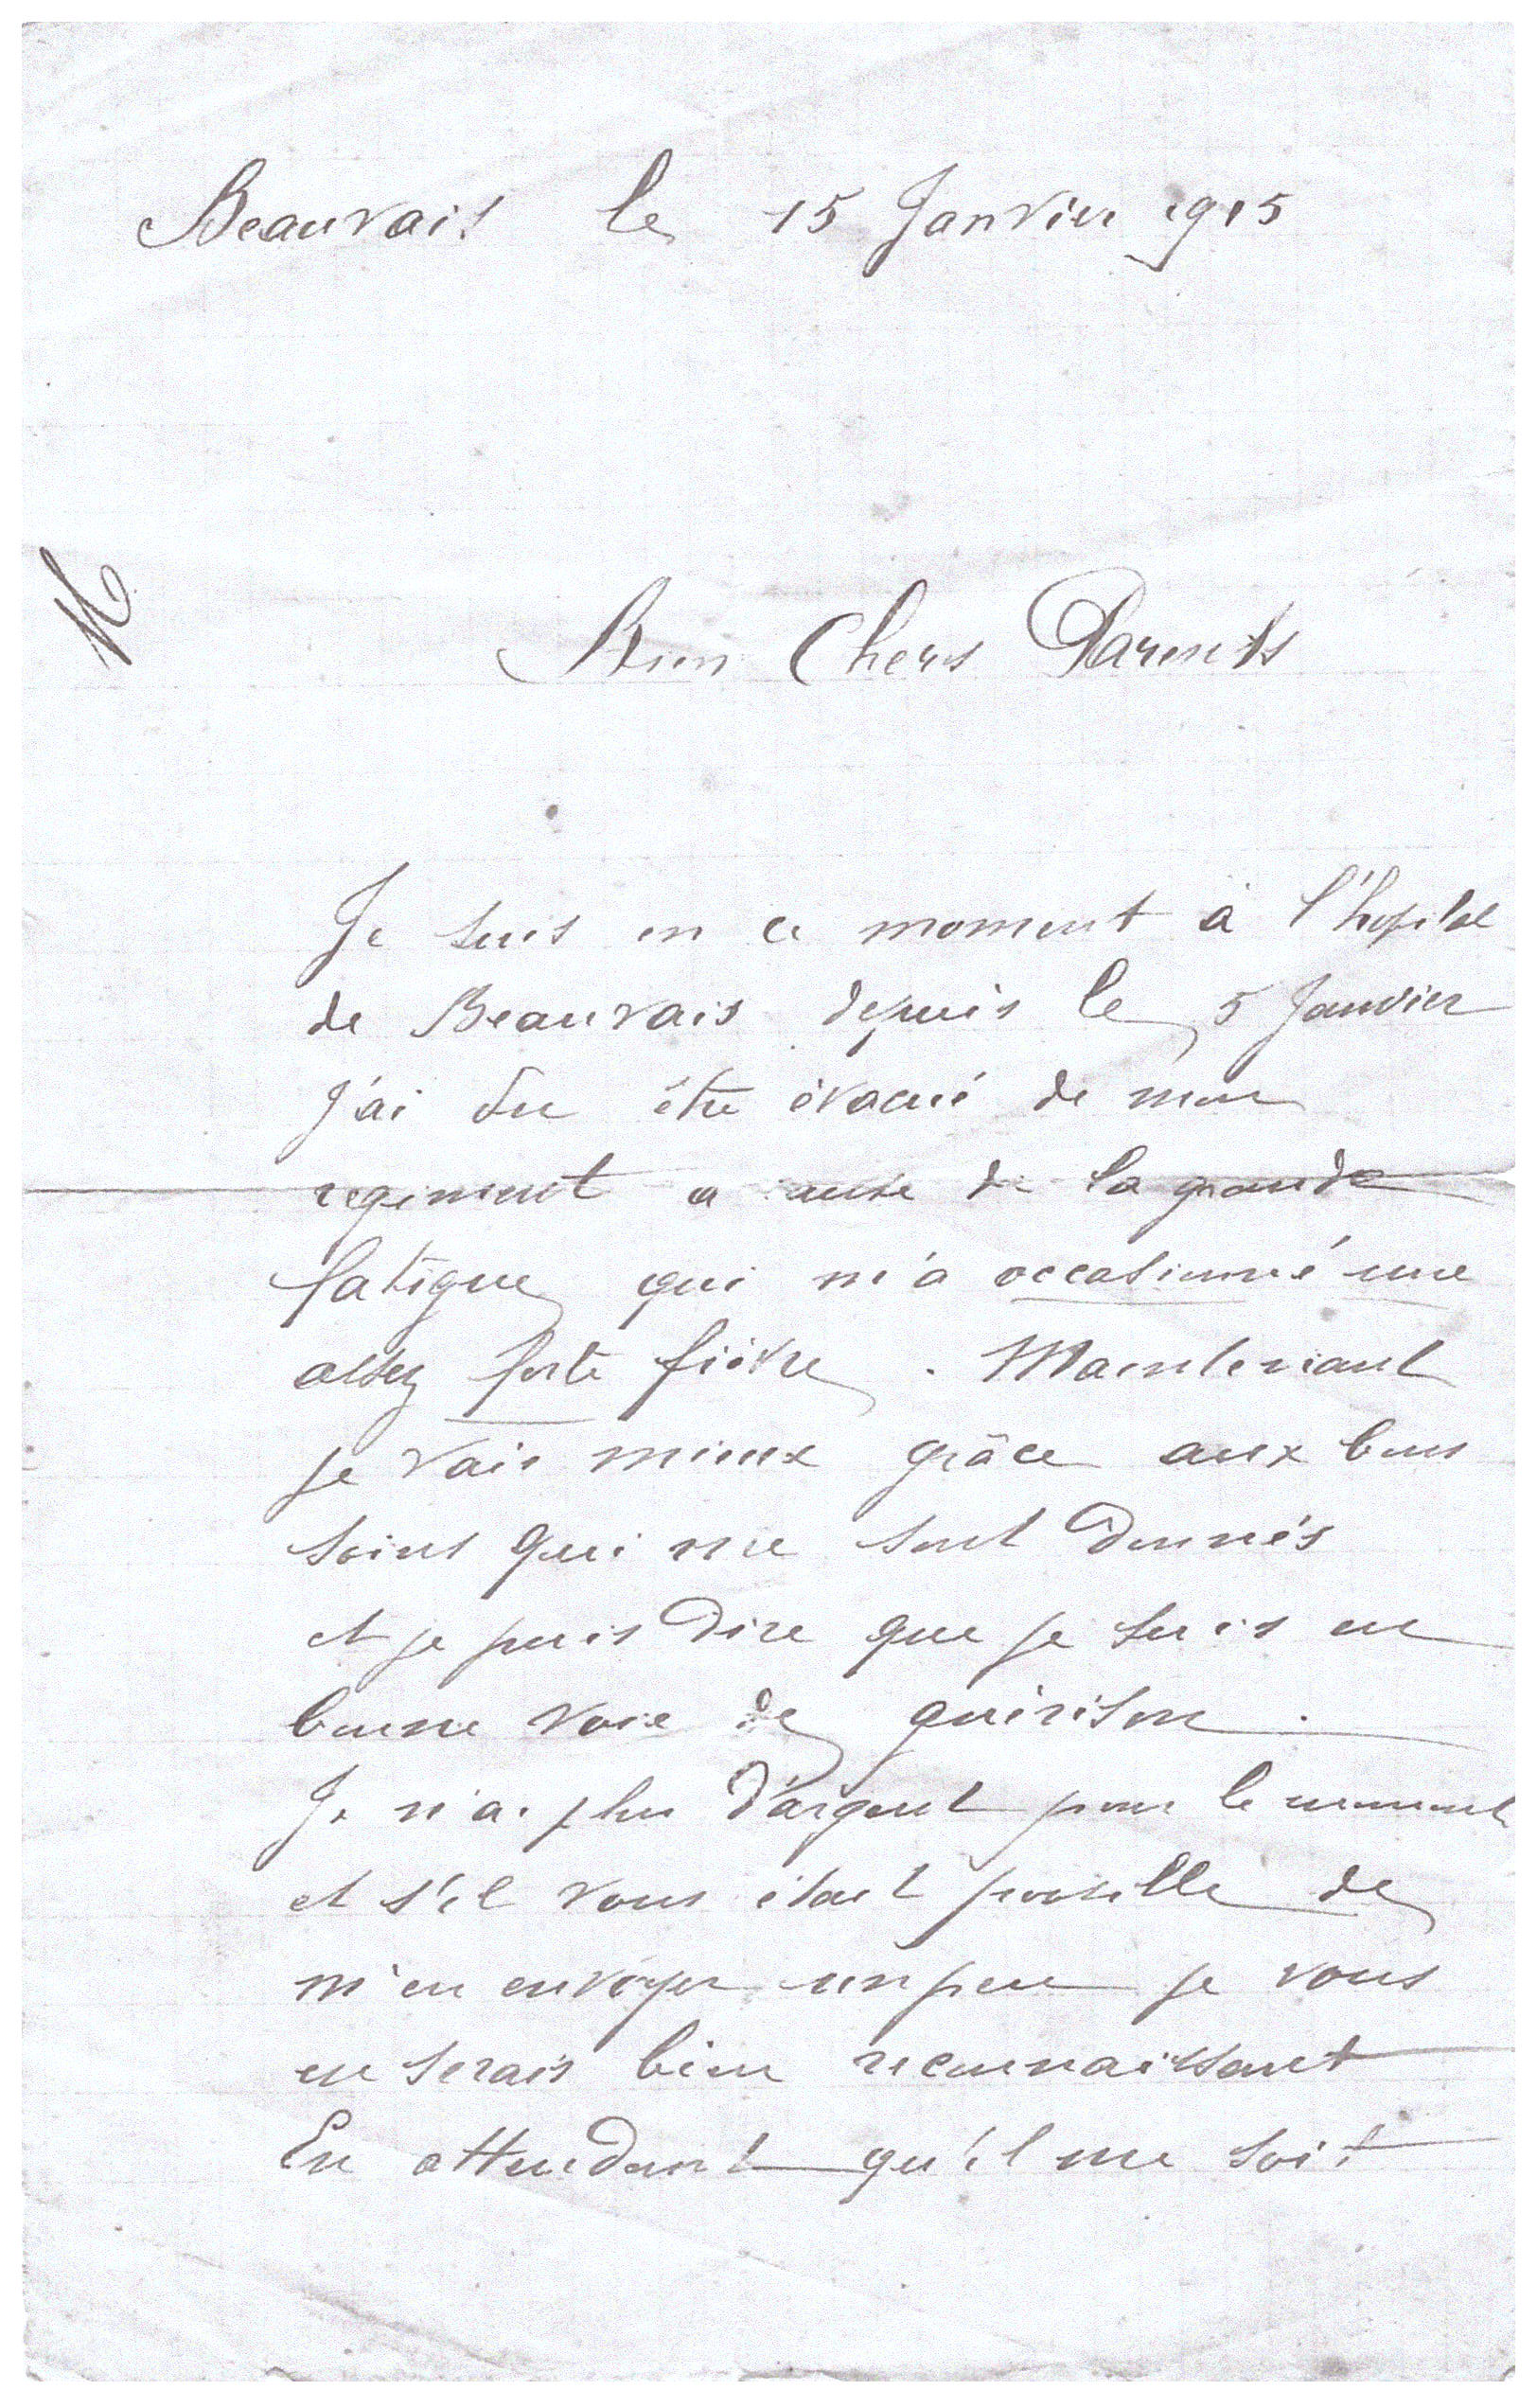 Beauvais le 15 Janvier 1915
Bien Chers Parents
Je suis en ce moment à l'hopital
de Beauvais depuis le 5 Janvier
j'ai du être évacué de mon
regiment a cause de la grande
fatigue qui m'a occasionné une
assez forte fièvre. Maintenant
je vais mieux grâce aux bons
soins qui me sont donnés
et je puis dire que je suis en
bonne voie de guérison.
Je n'ai plus d'argent pour le moment
et s'il vous était possible de
m'en envoyer un peu je vous
en serais bien reconnaissant
En attendant qu'il me soit